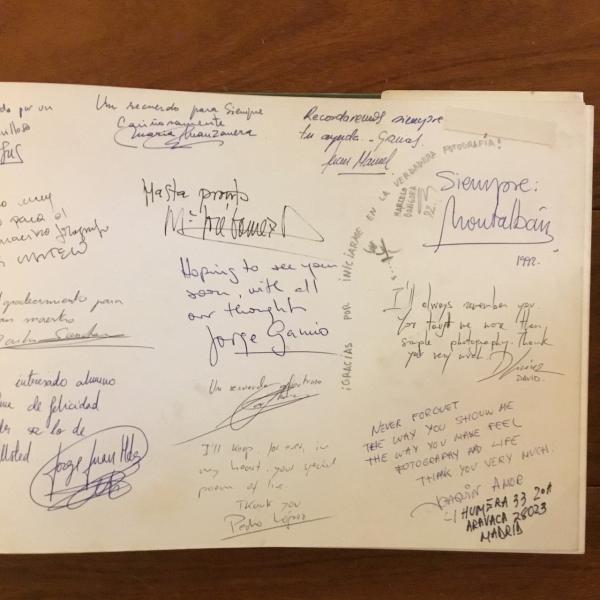 Un recuerdo para siempre
Cariñosamente
María Manzanera
Recordaremos siempre
tu ayuda. Gracias.
Juan Manuel
Siempre:
Montalbán
1992.
¡GRACIAS POR INICIARME EN LA VERDADERA FOTOGRAFÍA!
MARCELO
GÓNGORA
92
Hasta pronto
Mª José Gomez
Hoping to see you
soon, with all
our thought
Jorge Gamio
I'll always remember you
You taught me more then
simple photography. Thank
you very much.
DAVID.
para el
maestro fotógrafo
agradecimiento para
maestro
Un recuerdo
interesado alumno
de felicidad
de
Usted.
Jorge Juan
I'll keep, for ever, in
my heart, your special
poem of life.
Thank you
Pedro López
NEVER FORGET
THE WAY YOU SHOW ME
THE WAY YOU MAKE FEEL
FOTOGRAPHY AND LIFE
THANK YOU VERY MUCH.
JOAQUIN AMOR
C/ HUMERA 33 2ºA
ARAVACA 28023
MADRID